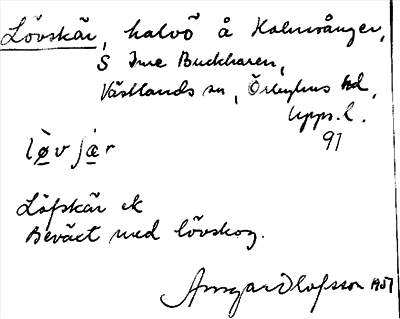 Lövskär, halvö å Holmsånger,
S Inre Buckharen,
Västlands sn, Örbyhus hd,
Upps. l.
91
lø̀v ʃæ̀r
Löfskär ek
Beväxt med lövskog.
Ansgar Olofsson 1951